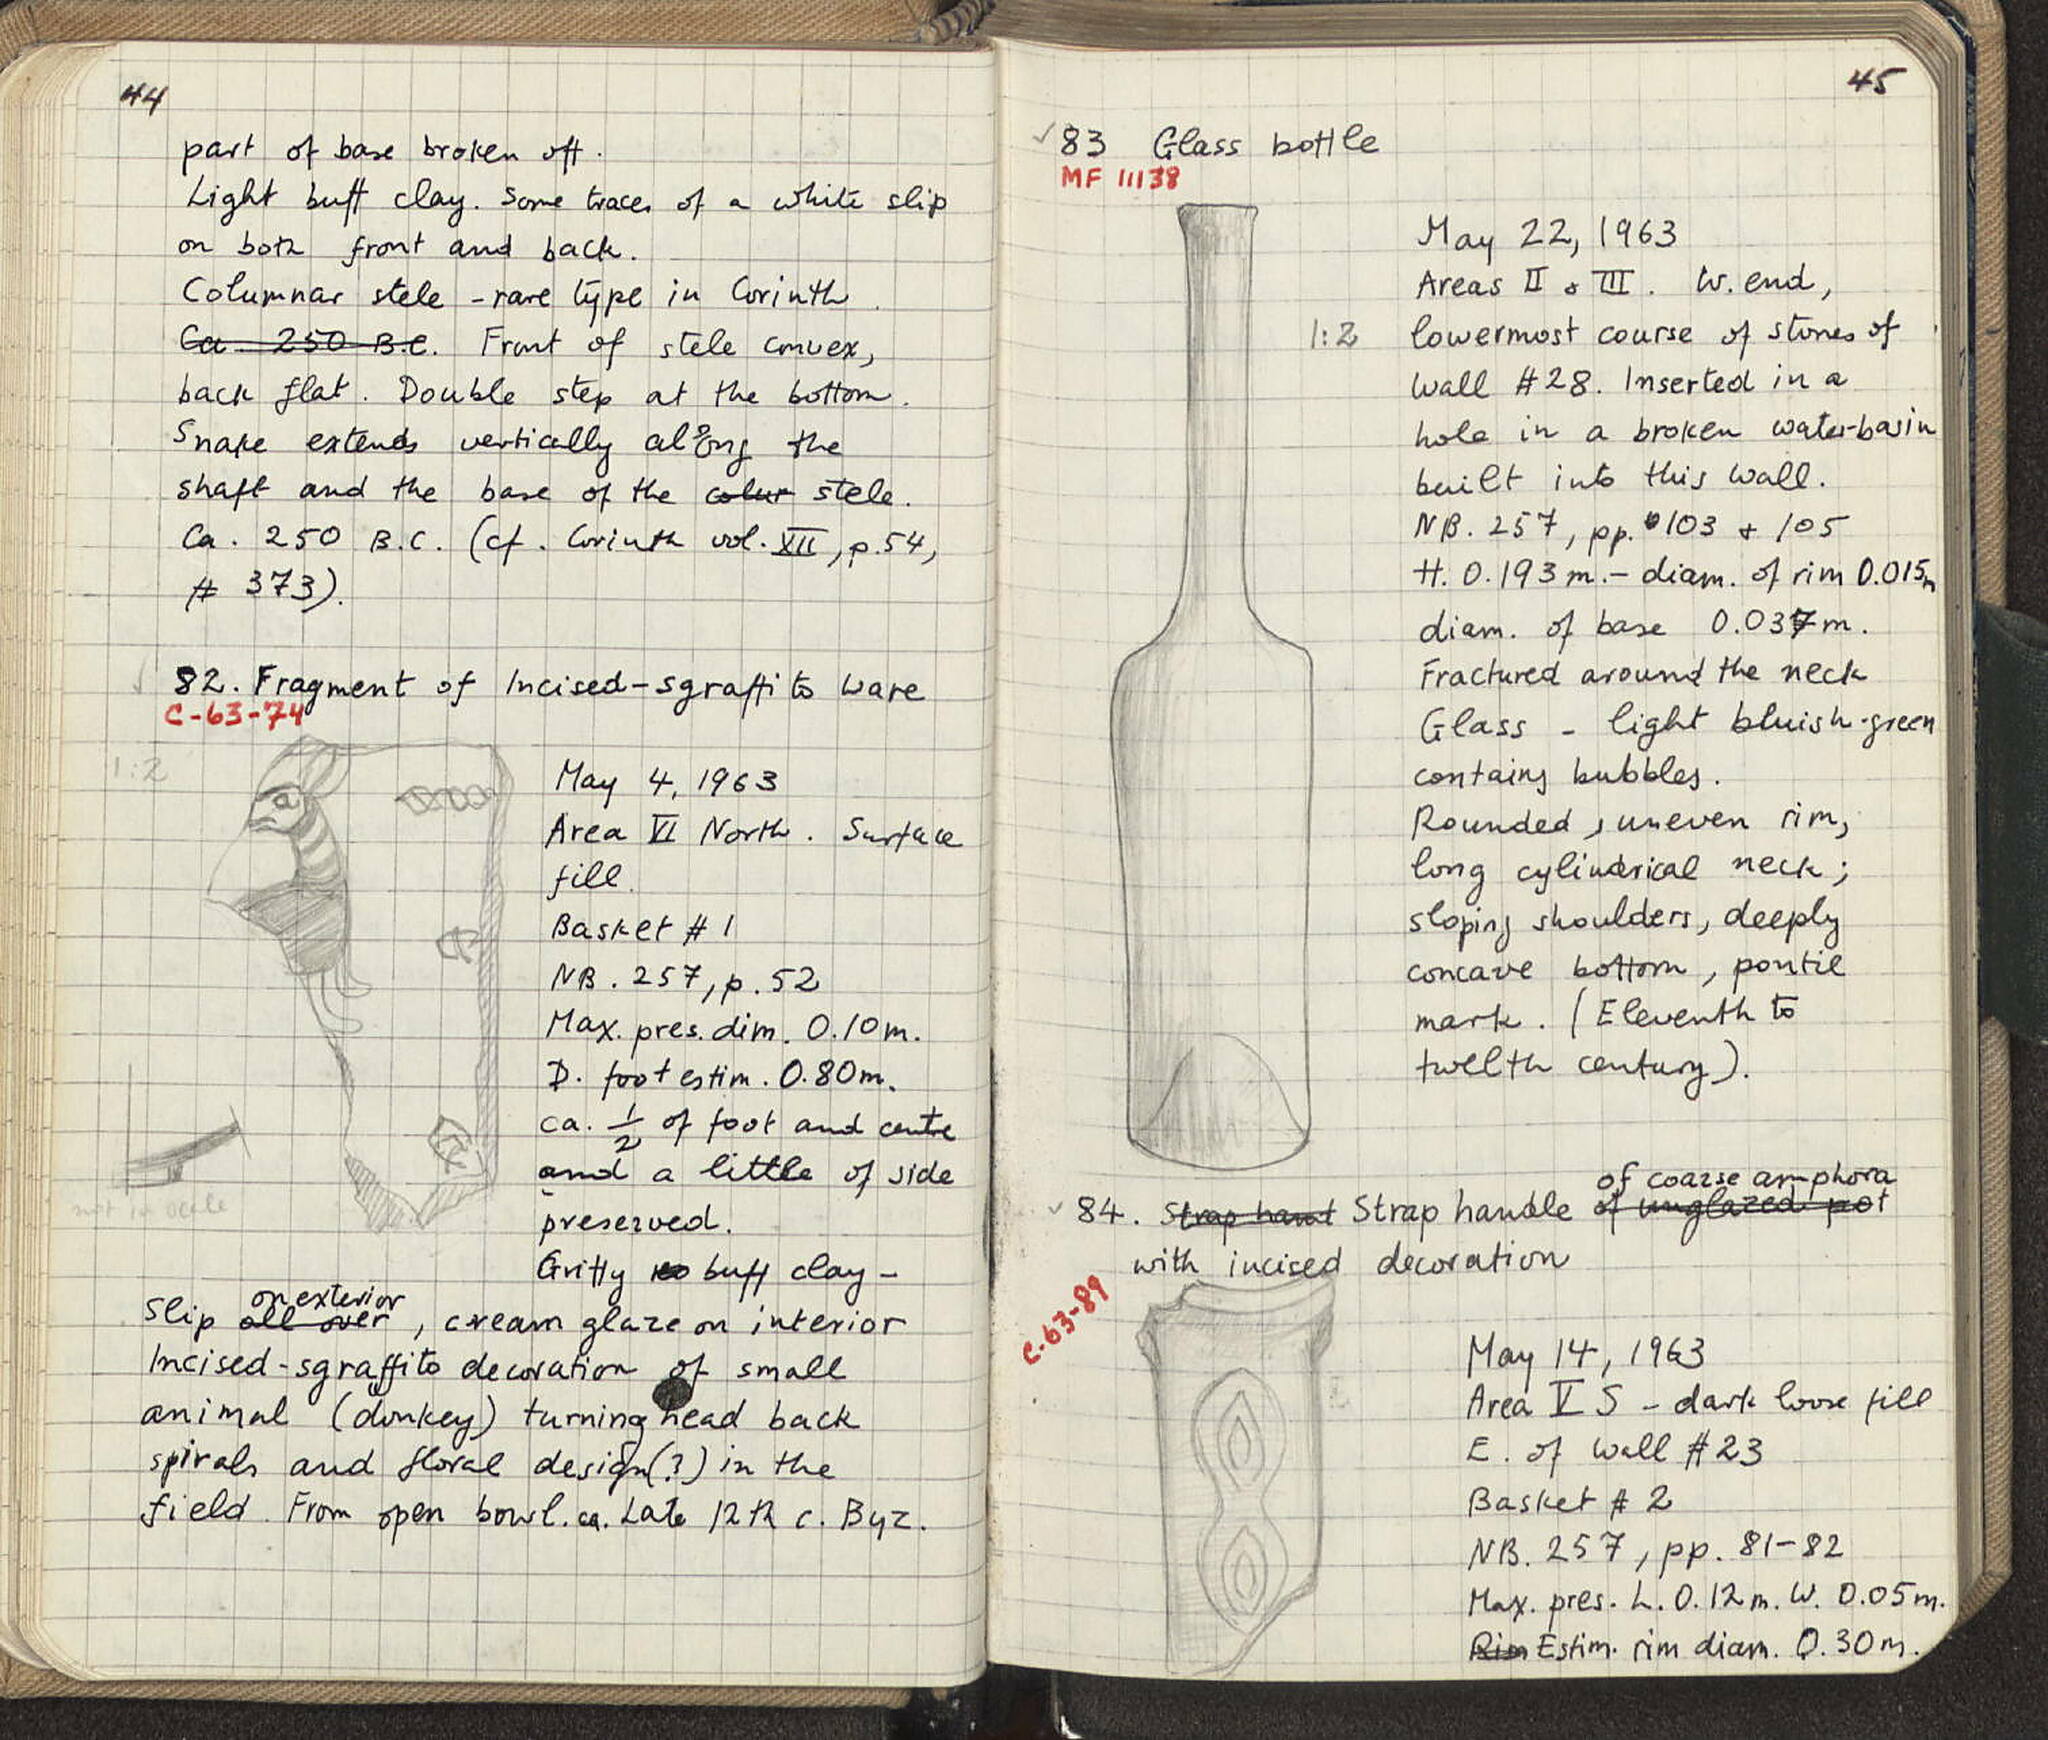 44
part of base broken off.
Light buff clay. Some traces of a white slip
on both front and back.
Columnar stele - rare type in Corinth.
Ca 250 B.C. Front of stele convex,
back flat. Double step at the bottom.
Snake extends vertically along the
shaft and the base of the colur stele.
Ca. 250 B.C. (cf. Corinth vol. XII, p.54,
# 373).
82. Fragment of Incised-sgraffito ware
C-63-74
1:2
May 4, 1963
Area VI North. Surface
fill.
Basket # 1
NB. 257, p. 52
Max. pres. dim. 0.10m.
D. foot estim. 0.80m.
ca. 1/2 of foot and centre
and a little of side
preserved.
not in scale
Gritty buff clay -
on exterior
slip all over, cream glaze on interior
Incised-sgraffito decoration of small
animal (donkey) turning head back
spirals and floral design(?) in the
field. From open bowl. ca. Late 12th c. Byz.
45
83 Glass bottle
MF 11138
May 22, 1963
Areas II & III. W. end,
1:2
lowermost course of stones of
wall #28. Inserted in a
hole in a broken water-basin
built into this wall.
NB. 257, pp. 103 + 105
H. 0.193m. - diam. of rim 0.015m
diam. of base 0.037m.
Fractured around the neck
Glass - light bluish-green
contains bubbles.
Rounded, uneven rim,
long cylindrical neck;
sloping shoulders, deeply
concave bottom, pontil
mark. (Eleventh to
twelth century).
of coarse amphora
84. Strap hant Strap handle of unglazed pot
with incised decoration
C-63-89
May 14, 1963
Area V S - dark loose fill
E. of wall #23
Basket # 2
NB. 257, pp. 81-82
Max. pres. L. 0.12m. W. 0.05m.
Rim Estim. rim diam. 0.30m.